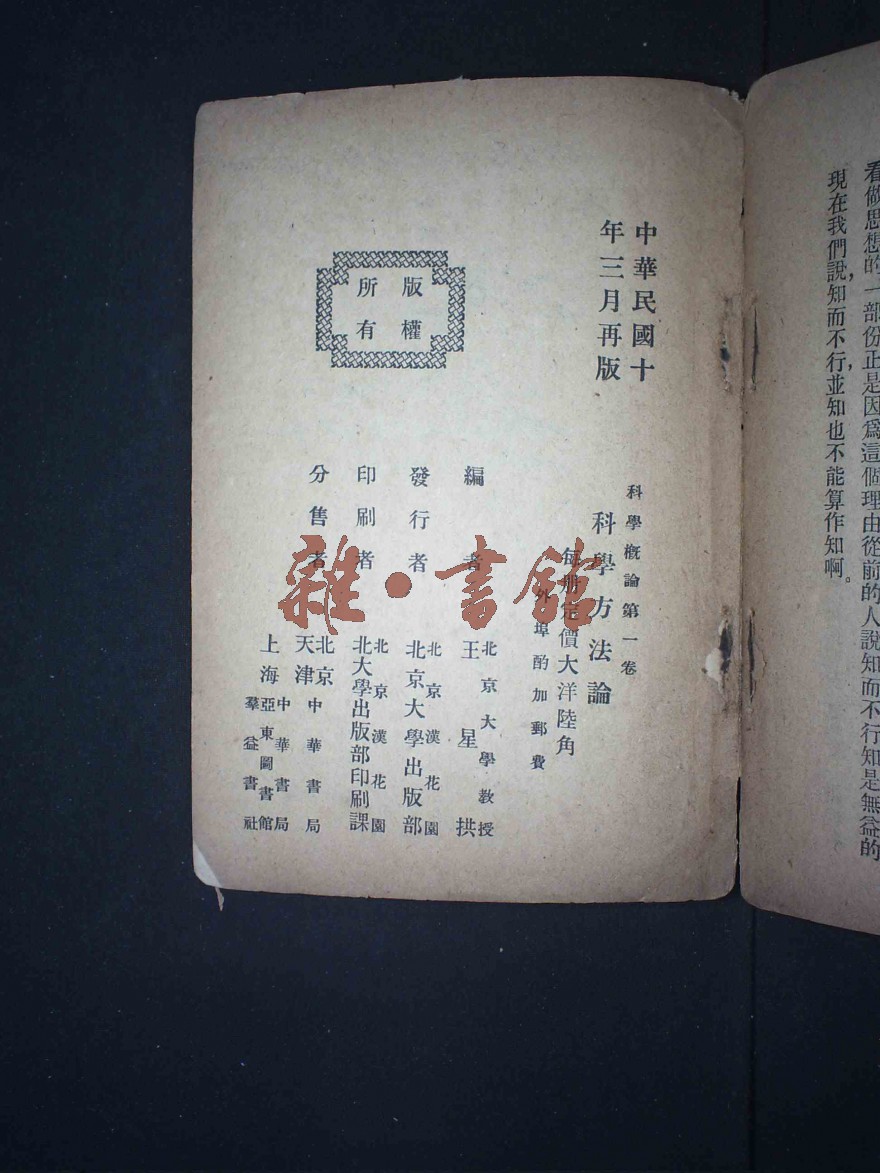 看做思想的一部份正是因爲這個理由從前的人說知而不行知是無益的
現在我們說,知而不行,並知也不能算作知啊。
中華民國十
年三月再版
版權
所有
科學概論第一卷
科學方法論
每册定價大洋陸角
外埠酌加郵費
編者
北京大學教授
王星拱
發行者
北京漢花園
北京大學出版部
印刷者
北京漢花園
北大學出版部印刷課
分售者
北京
天津
中華書局
上海
中華書局
亞東圖書館
羣益書社
雜·書館